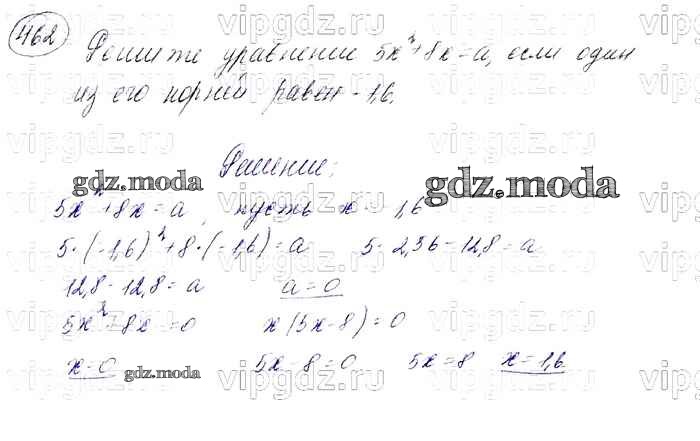 462
Решите уравнение 5x²+8x=a, если один
из его корней равен -1,6.
Решение:
5x²+8x=a, пусть x = -1,6
5·(-1,6)²+8·(-1,6)=a 5·2,56-12,8=a
12,8-12,8=a a=0
5x²+8x=0 x(5x-8)=0
x=0 5x-8=0 5x=8 x=1,6
gdz.moda
gdz.moda
gdz.moda
vipgdz.ru